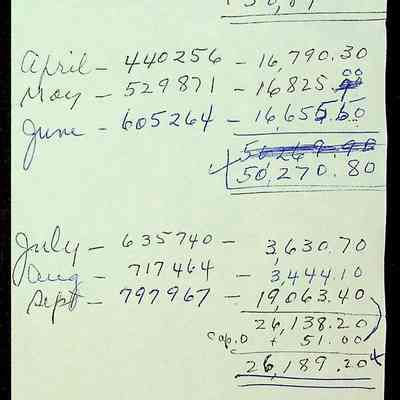 April – 440256 – 16,790.30
May – 529871 – 16825.00
June – 605264 – 16,655.50
50,270.80
July – 635740 – 3,630.70
Aug – 717464 – 3,444.10
Sept – 797967 – 19,063.40
26,138.20
Cap.D + 51.00
26,189.20